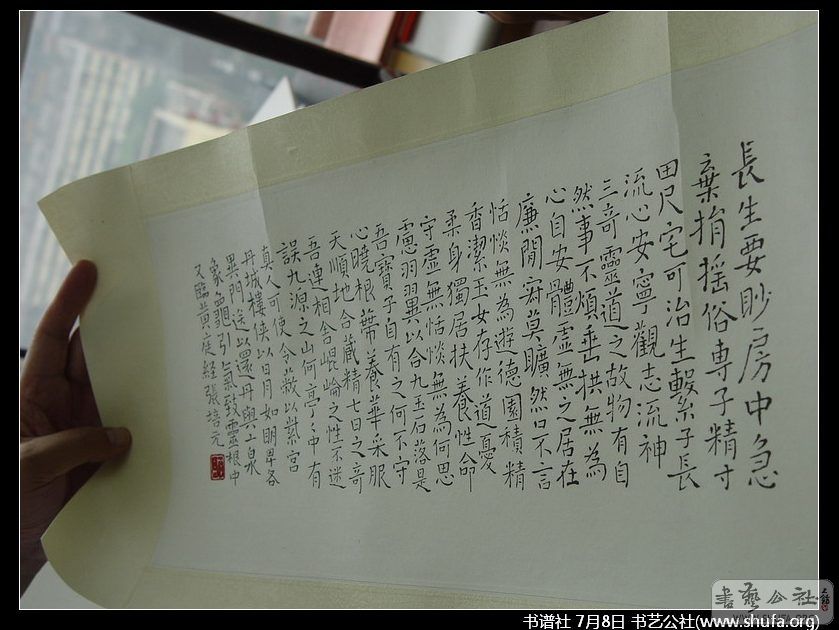 長生要眇房中急
棄捐搖俗專子精寸
田尺宅可治生繫子長
流心安寧觀志流神
三奇靈道之故物有自
然事不煩垂拱無為
心自安體虛無之居在
廉間寂莫曠然口不言
恬惔無為遊德園積精
香潔玉女存作道憂
柔身獨居扶養性命
守虛無恬惔無為何思
慮羽翼以合九玉石落是
吾寶子自有之何不守
心曉根蒂養華采服
天順地合藏精七日之奇
吾連相舍崐崘之性不迷
誤九源之山何亭亭中有
真人可使令蔽以紫宮
丹城樓俠以日月如明畀各
異門送以還丹與上泉
象龜引氣致靈根中
又臨黃庭經張培元
書藝公社
书谱社 7月8日 书艺公社(www.shufa.org)